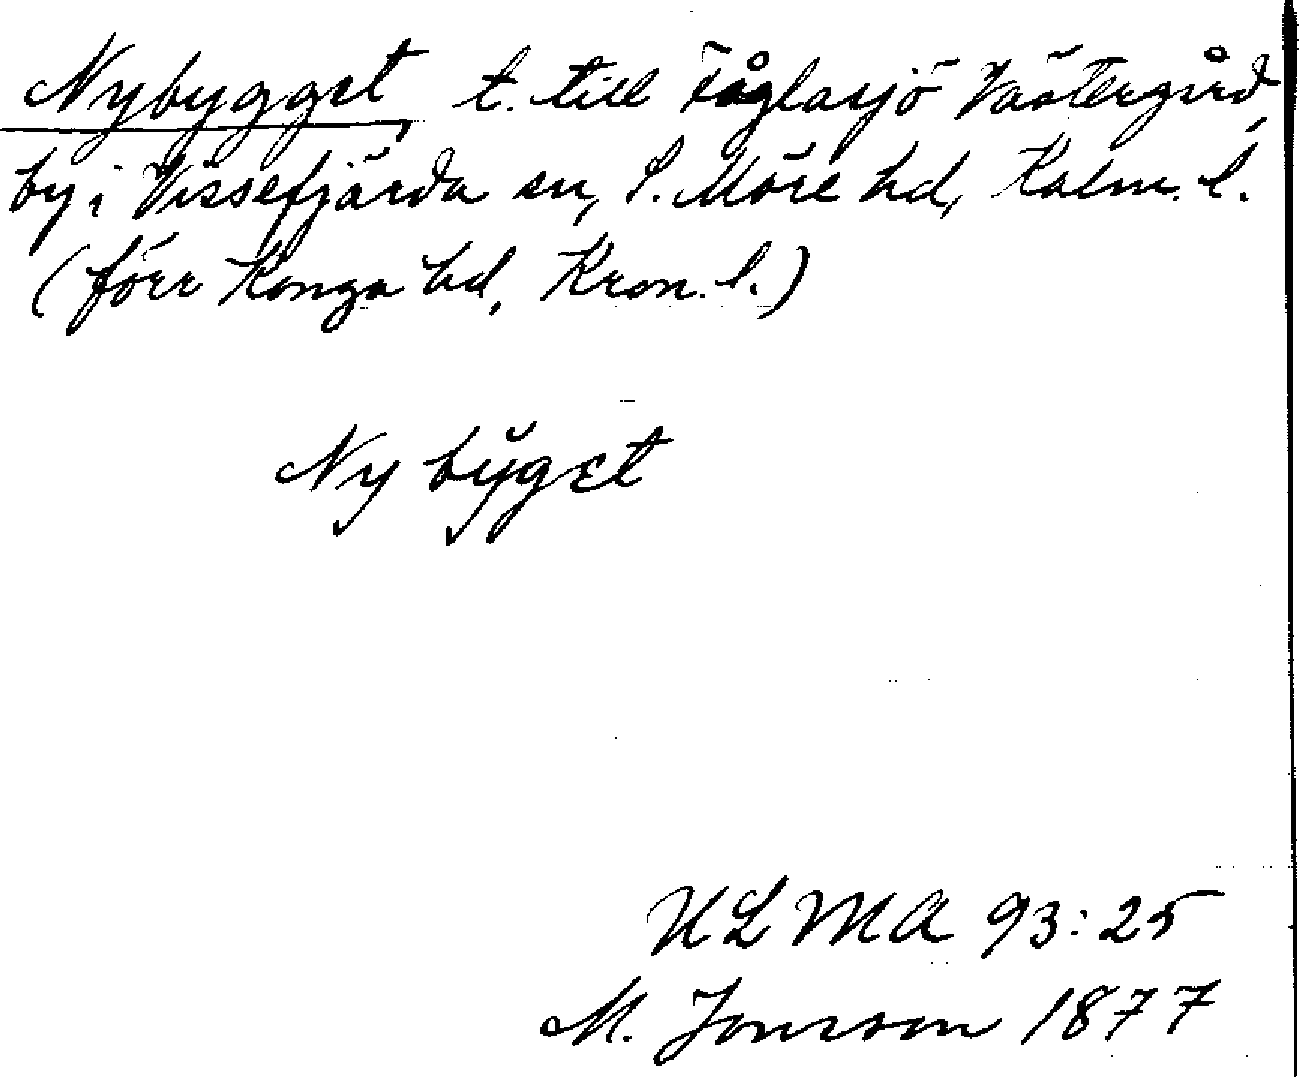 Nybygget, t. till Fåglasjö Västergård,
by i Vissefjärda sn, S. Möre hd, Kalm. l.
(förr Konga hd, Kron. l.)
Ny by̆get
ULMA 93:25
M. Jonsson 1877